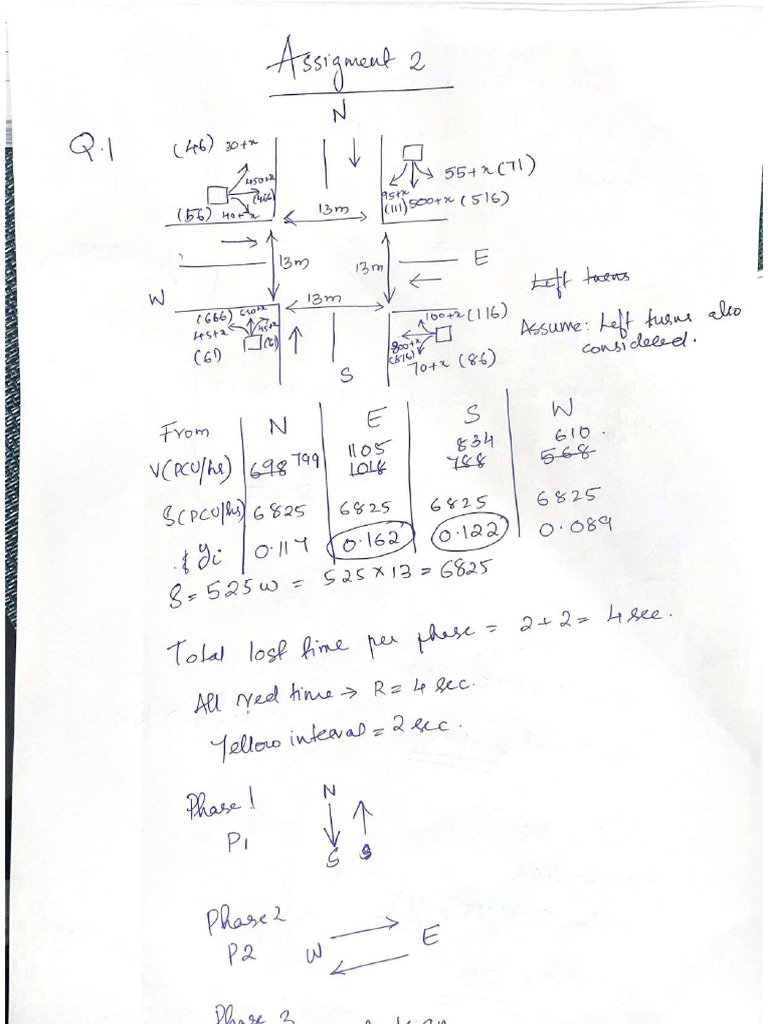 Assigment 2
N
Q.1
(46) 30+x
450+x
(466)
(56) 40+x
55+x (71)
95+x
(111) 500+x (516)
13m
13m
13m
E
W
13m
Left turns
(666) 650+x
45+x
45+x
(61)
(61)
100+x (116)
800+x
(816)
70+x (86)
Assume: Left turns also
considered.
S
From N E S W
V(PCU/hr) 698 799 1105 1018 834 788 610 568
S(PCU/hr) 6825 6825 6825 6825
yi 0.117 0.162 0.122 0.089
S = 525w = 525 x 13 = 6825
Total lost time per phase = 2+2 = 4 sec.
All red time → R = 4 sec.
Yellow interval = 2 sec.
Phase 1
P1
N
S S
Phase 2
P2 W E
Phase 3